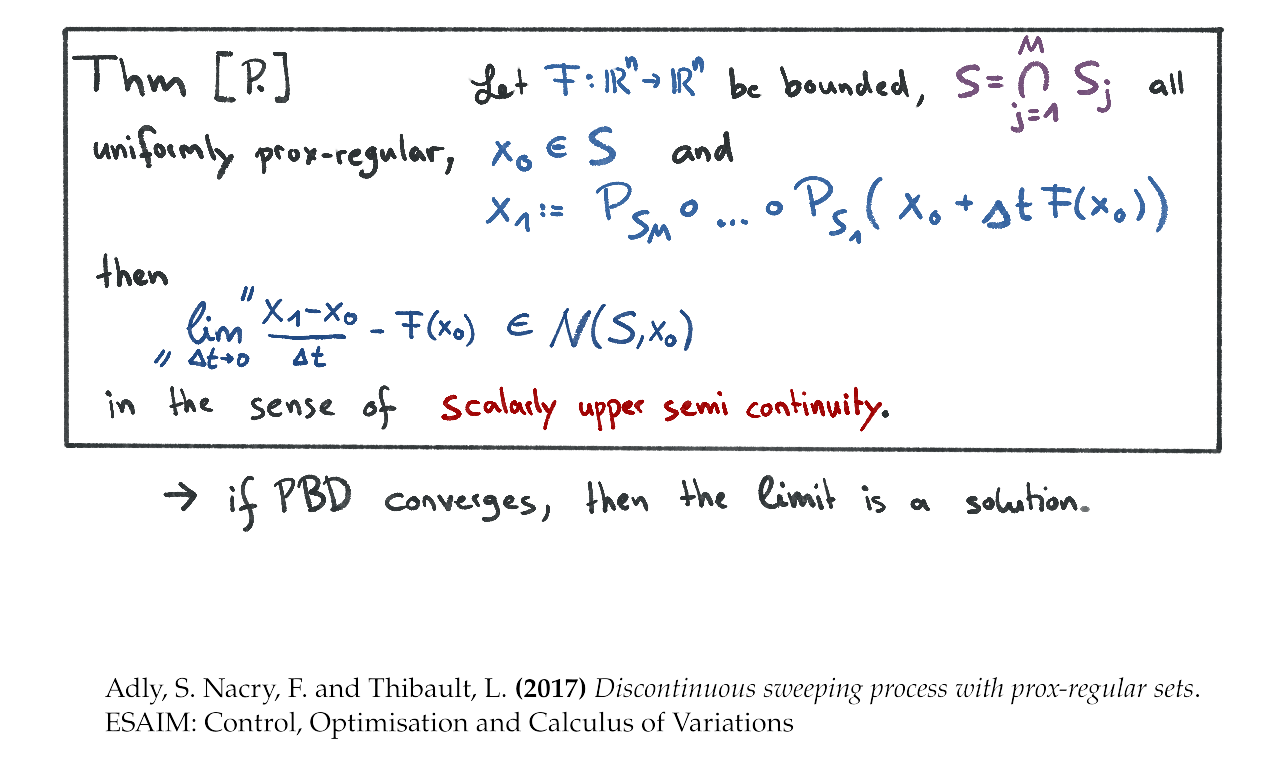 Thm [P.] Let F: ℝⁿ → ℝⁿ be bounded, S = ⋂_{j=1}^{M} S_j all
uniformly prox-regular, x₀ ∈ S and
x₁ := P_{S_M} ∘ ... ∘ P_{S_1}( x₀ + Δt F(x₀))
then
"lim_{Δt→0}" (x₁-x₀)/Δt - F(x₀) ∈ N(S,x₀)
in the sense of scalarly upper semi continuity.
→ if PBD converges, then the limit is a solution.
Adly, S. Nacry, F. and Thibault, L. (2017) Discontinuous sweeping process with prox-regular sets.
ESAIM: Control, Optimisation and Calculus of Variations